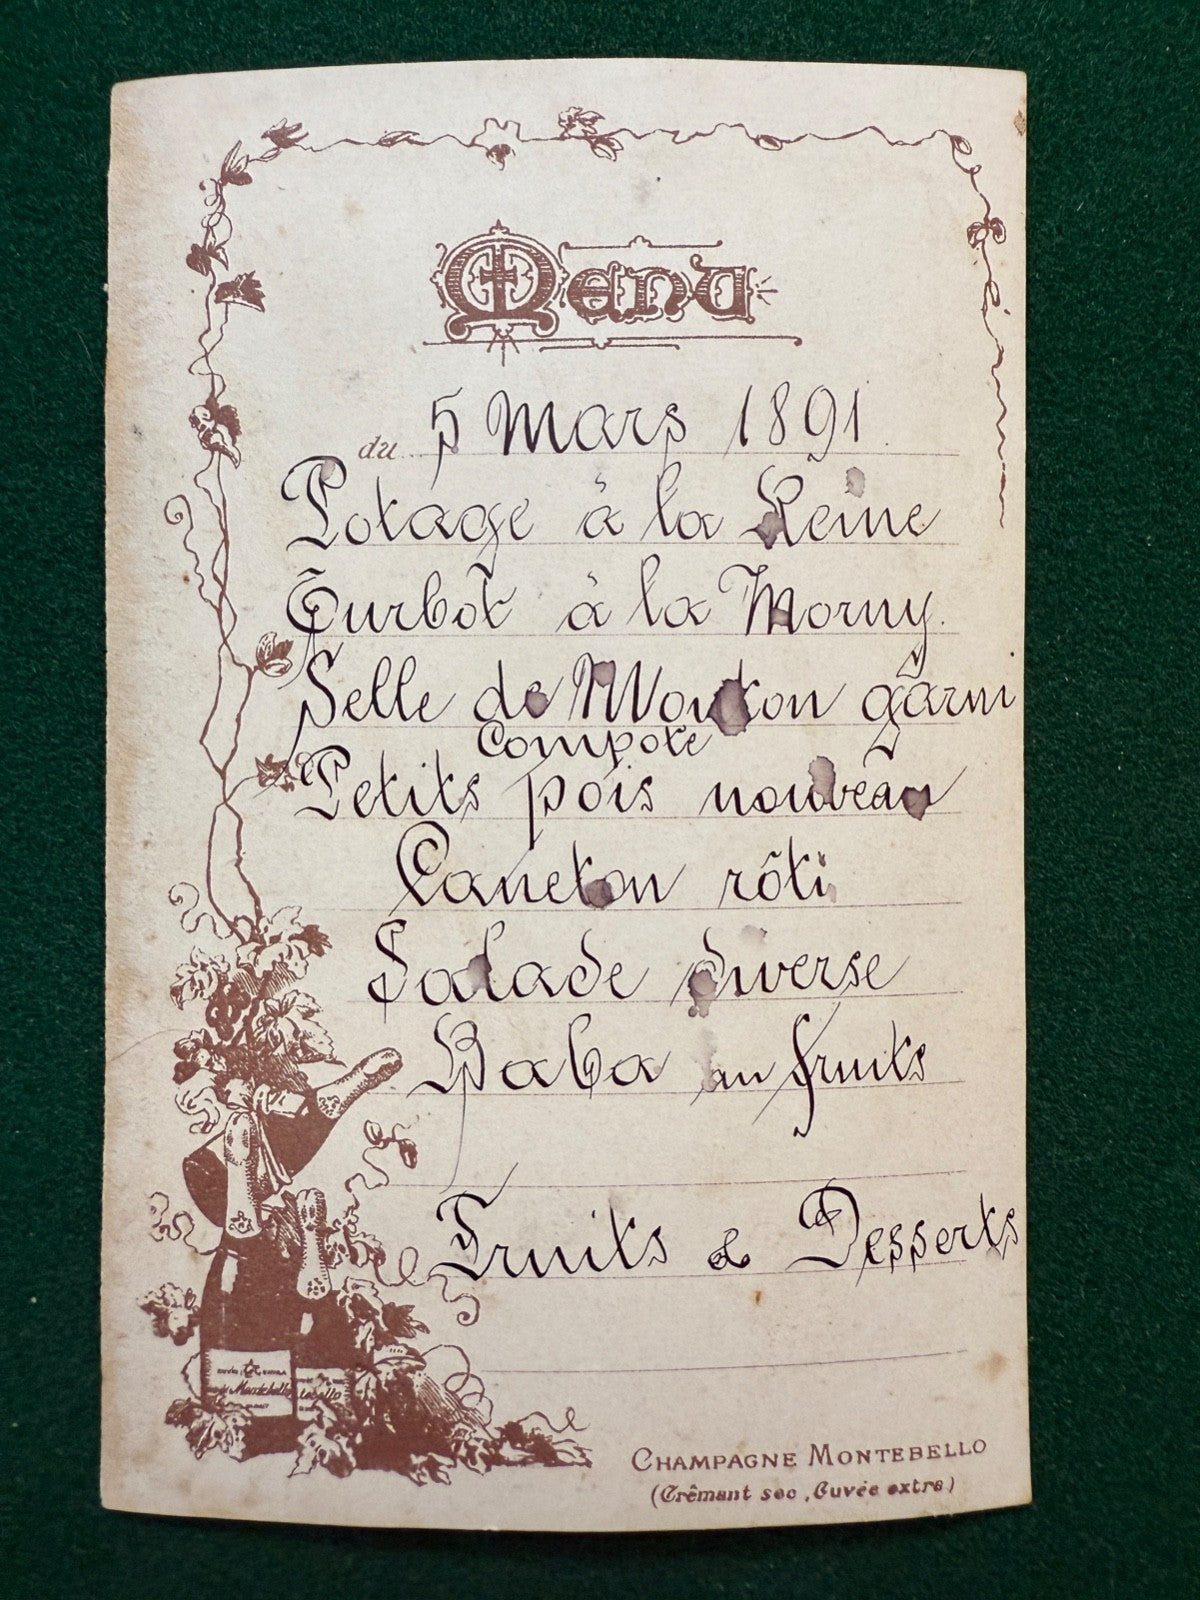 Menu
du 5 Mars 1891.
Potage à la Reine
Turbot à la Morny.
Selle de Mouton garni
Compote
Petits pois nouveau
Caneton rôti
Salade diverse
Baba au fruits
Fruits & Desserts
Montebello
CHAMPAGNE MONTEBELLO
(Crêmant sec, Cuvée extra)